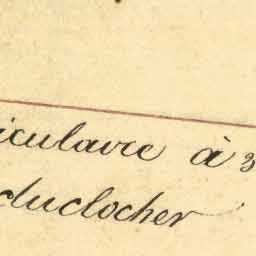 iculaire à 3
du clocher